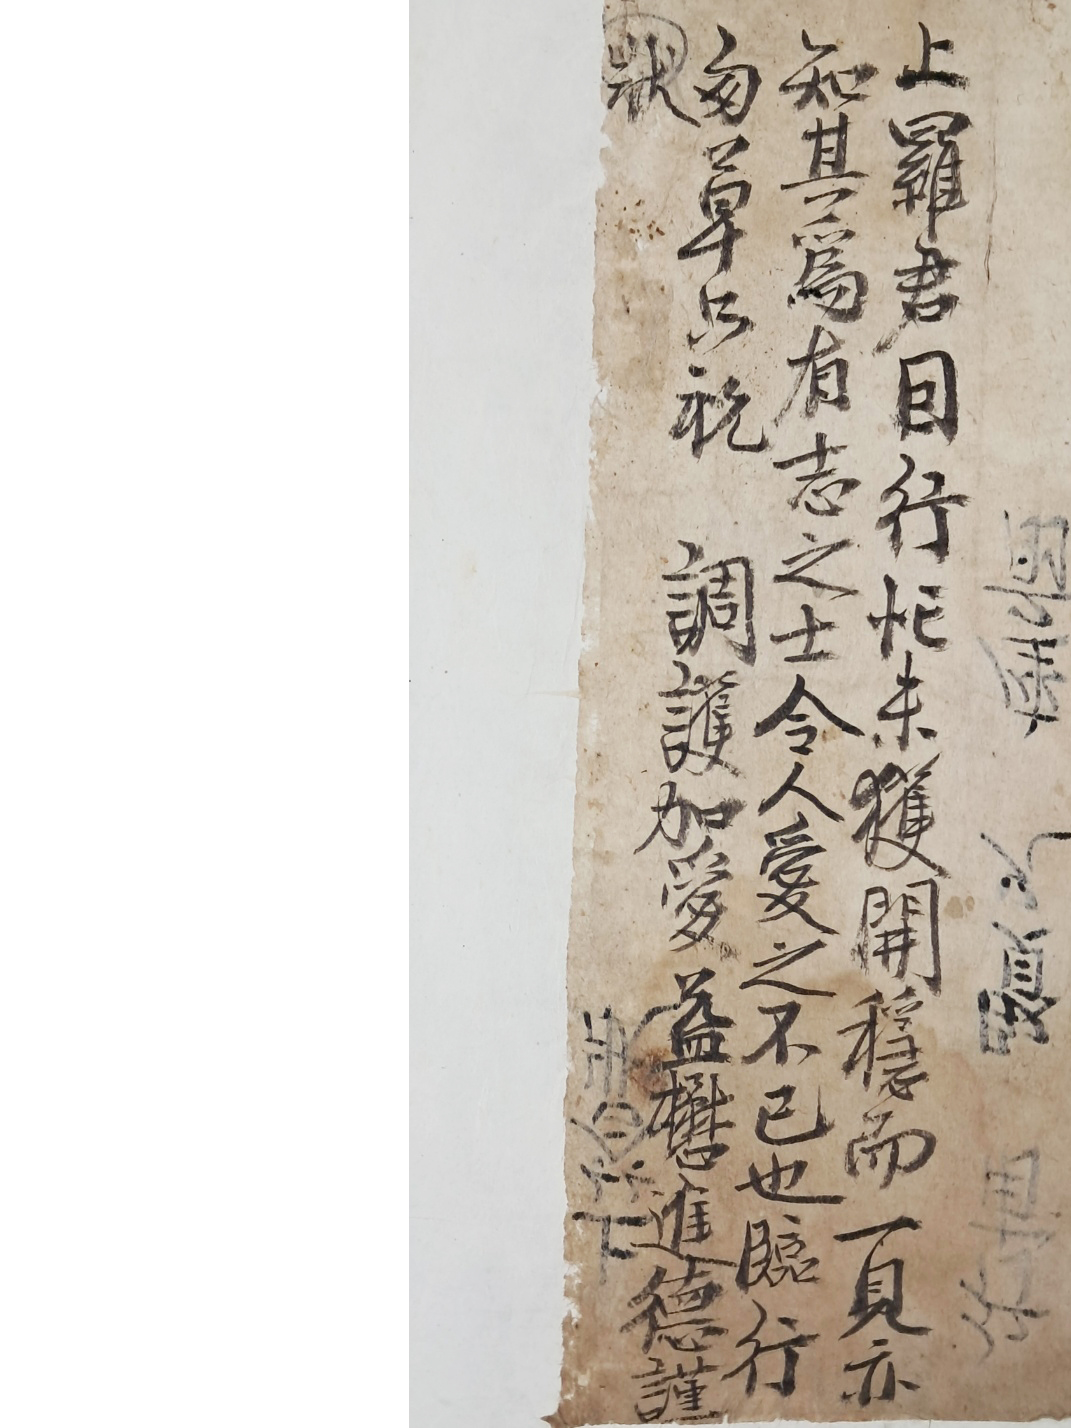 上羅君目行忙未獲開穩而一見亦
知其爲有志之士令人愛之不已也臨行
匆草只祝 調護加愛益懋進德謹
狀